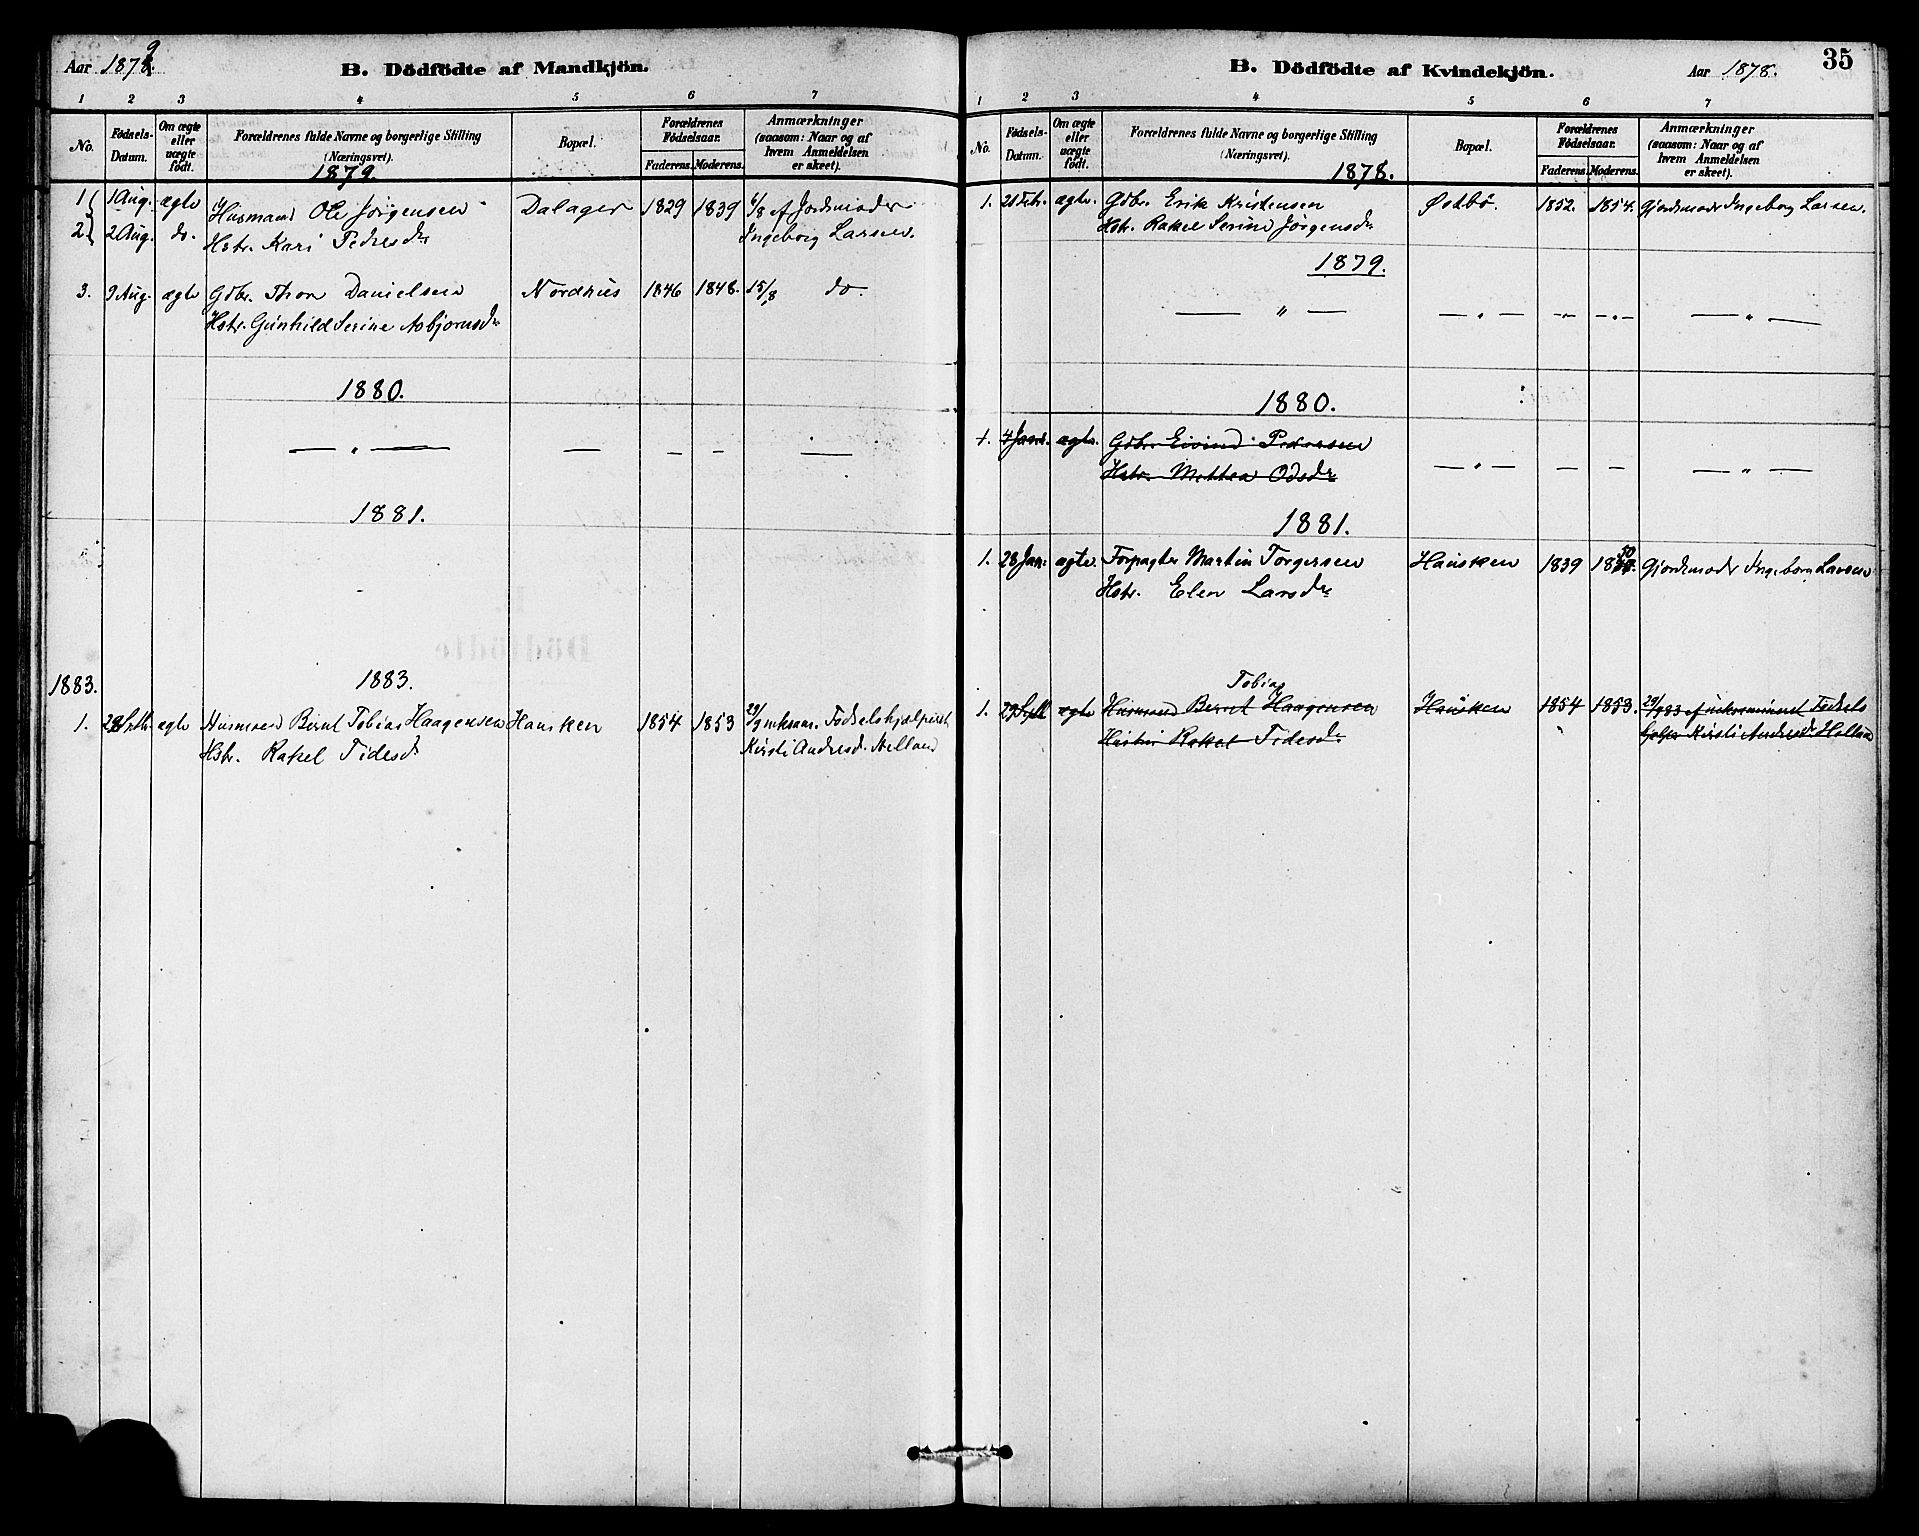 Aar 1879.
B. Dödfödte af Mandkjön.
1 2 3 4 5 6 7
No.
Fødsels-Datum.
Om ægte eller uægte født.
Forældrenes fulde Navne og borgerlige Stilling (Næringsvei).
Bopæl.
Forældrenes Fødselsaar.
Faderens. Moderens.
Anmærkninger (saasom: Naar og af hvem Anmeldelsen er skeet).
1879.
1 1 Aug. ægte Husmand Ole Jörgensen Dalager 1829 1839 6/8 af Jordemoder
2 2 Aug. do. Hstr. Kari Pedersdr Ingeborg Larsen.
3. 9 Aug. ægte Gdbr. Thon Danielsen Nordhus 1846 1848. 15/8 do.
Hstr. Gunhild Serine Asbjörnsdr
1880.
— " — — — — —
1881.
1883. 1883.
1. 29 Septbr ægte Husmand Bernt Tobias Haagensen Hausken 1854 1853 29/9 ueksam. Födselshjælperske
Hstr. Rakel Tidesdr Kirsti Andresd. Helland
35
B. Dödfödte af Kvindekjön.
Aar 1878.
1 2 3 4 5 6 7
No.
Fødsels-Datum.
Om ægte eller uægte født.
Forældrenes fulde Navne og borgerlige Stilling (Næringsvei).
Bopæl.
Forældrenes Fødselsaar.
Faderens. Moderens.
Anmærkninger (saasom: Naar og af hvem Anmeldelsen er skeet).
1878.
1. 21 Febr. ægte. Gdbr. Erik Kristensen Østbö. 1852. 1854. Gjordemoder Ingeborg Larsen.
Hstr. Rakel Serine Jörgensdr
1879.
— " — — " — — " — — " — — " —
1880.
1. 4 Janr. ægte. Gdbr. Eivind Pedersen
Hstr. Mettea Odsdr — " — — — — " —
1881.
1. 28 Jan: ægte. Forpagter Martin Torgersen Hausken 1839 1850 Gjordemoder Ingeborg Larsen
Hstr. Elen Larsdr
Tobias
1. 29 Septb ægte Husmand Bernt Haagensen Hausken 1854 1853. 29/9 83 af uexamineret Födsels
Hustru Rakel Tidesdr hjælper Kirsti Andresdr Helland